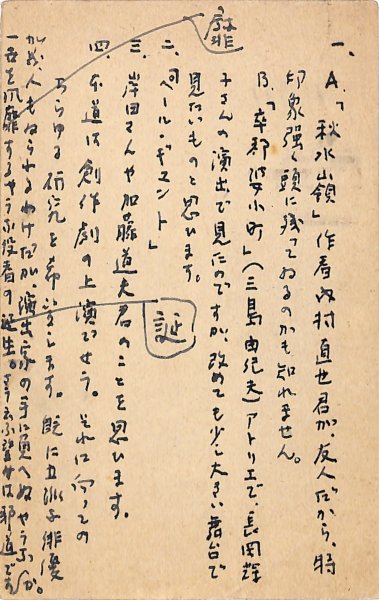 一、A、「秋水嶺」作者内村直也君が、友人だから、特
印象強く頭に残ってゐるのかも知れません。
B、「卒都婆小町」(三島由紀夫)アトリエで、長岡輝
子さんの演出で見たのですが、改めても少し大きい舞台で
見たいものと思ひます。
二、「ペール・ギュント」
三、岸田さんや加藤道夫君のことを思ひます。
四、本道は創作劇の上演でせう。それに向っての
あらゆる研究を希望します。既に立派な俳優
人もゐられるわけだが、演出家の手に負へぬやうな
一世を風靡するやうな役者の誕生。さういふ望みは邪道です
か。
靡
誕